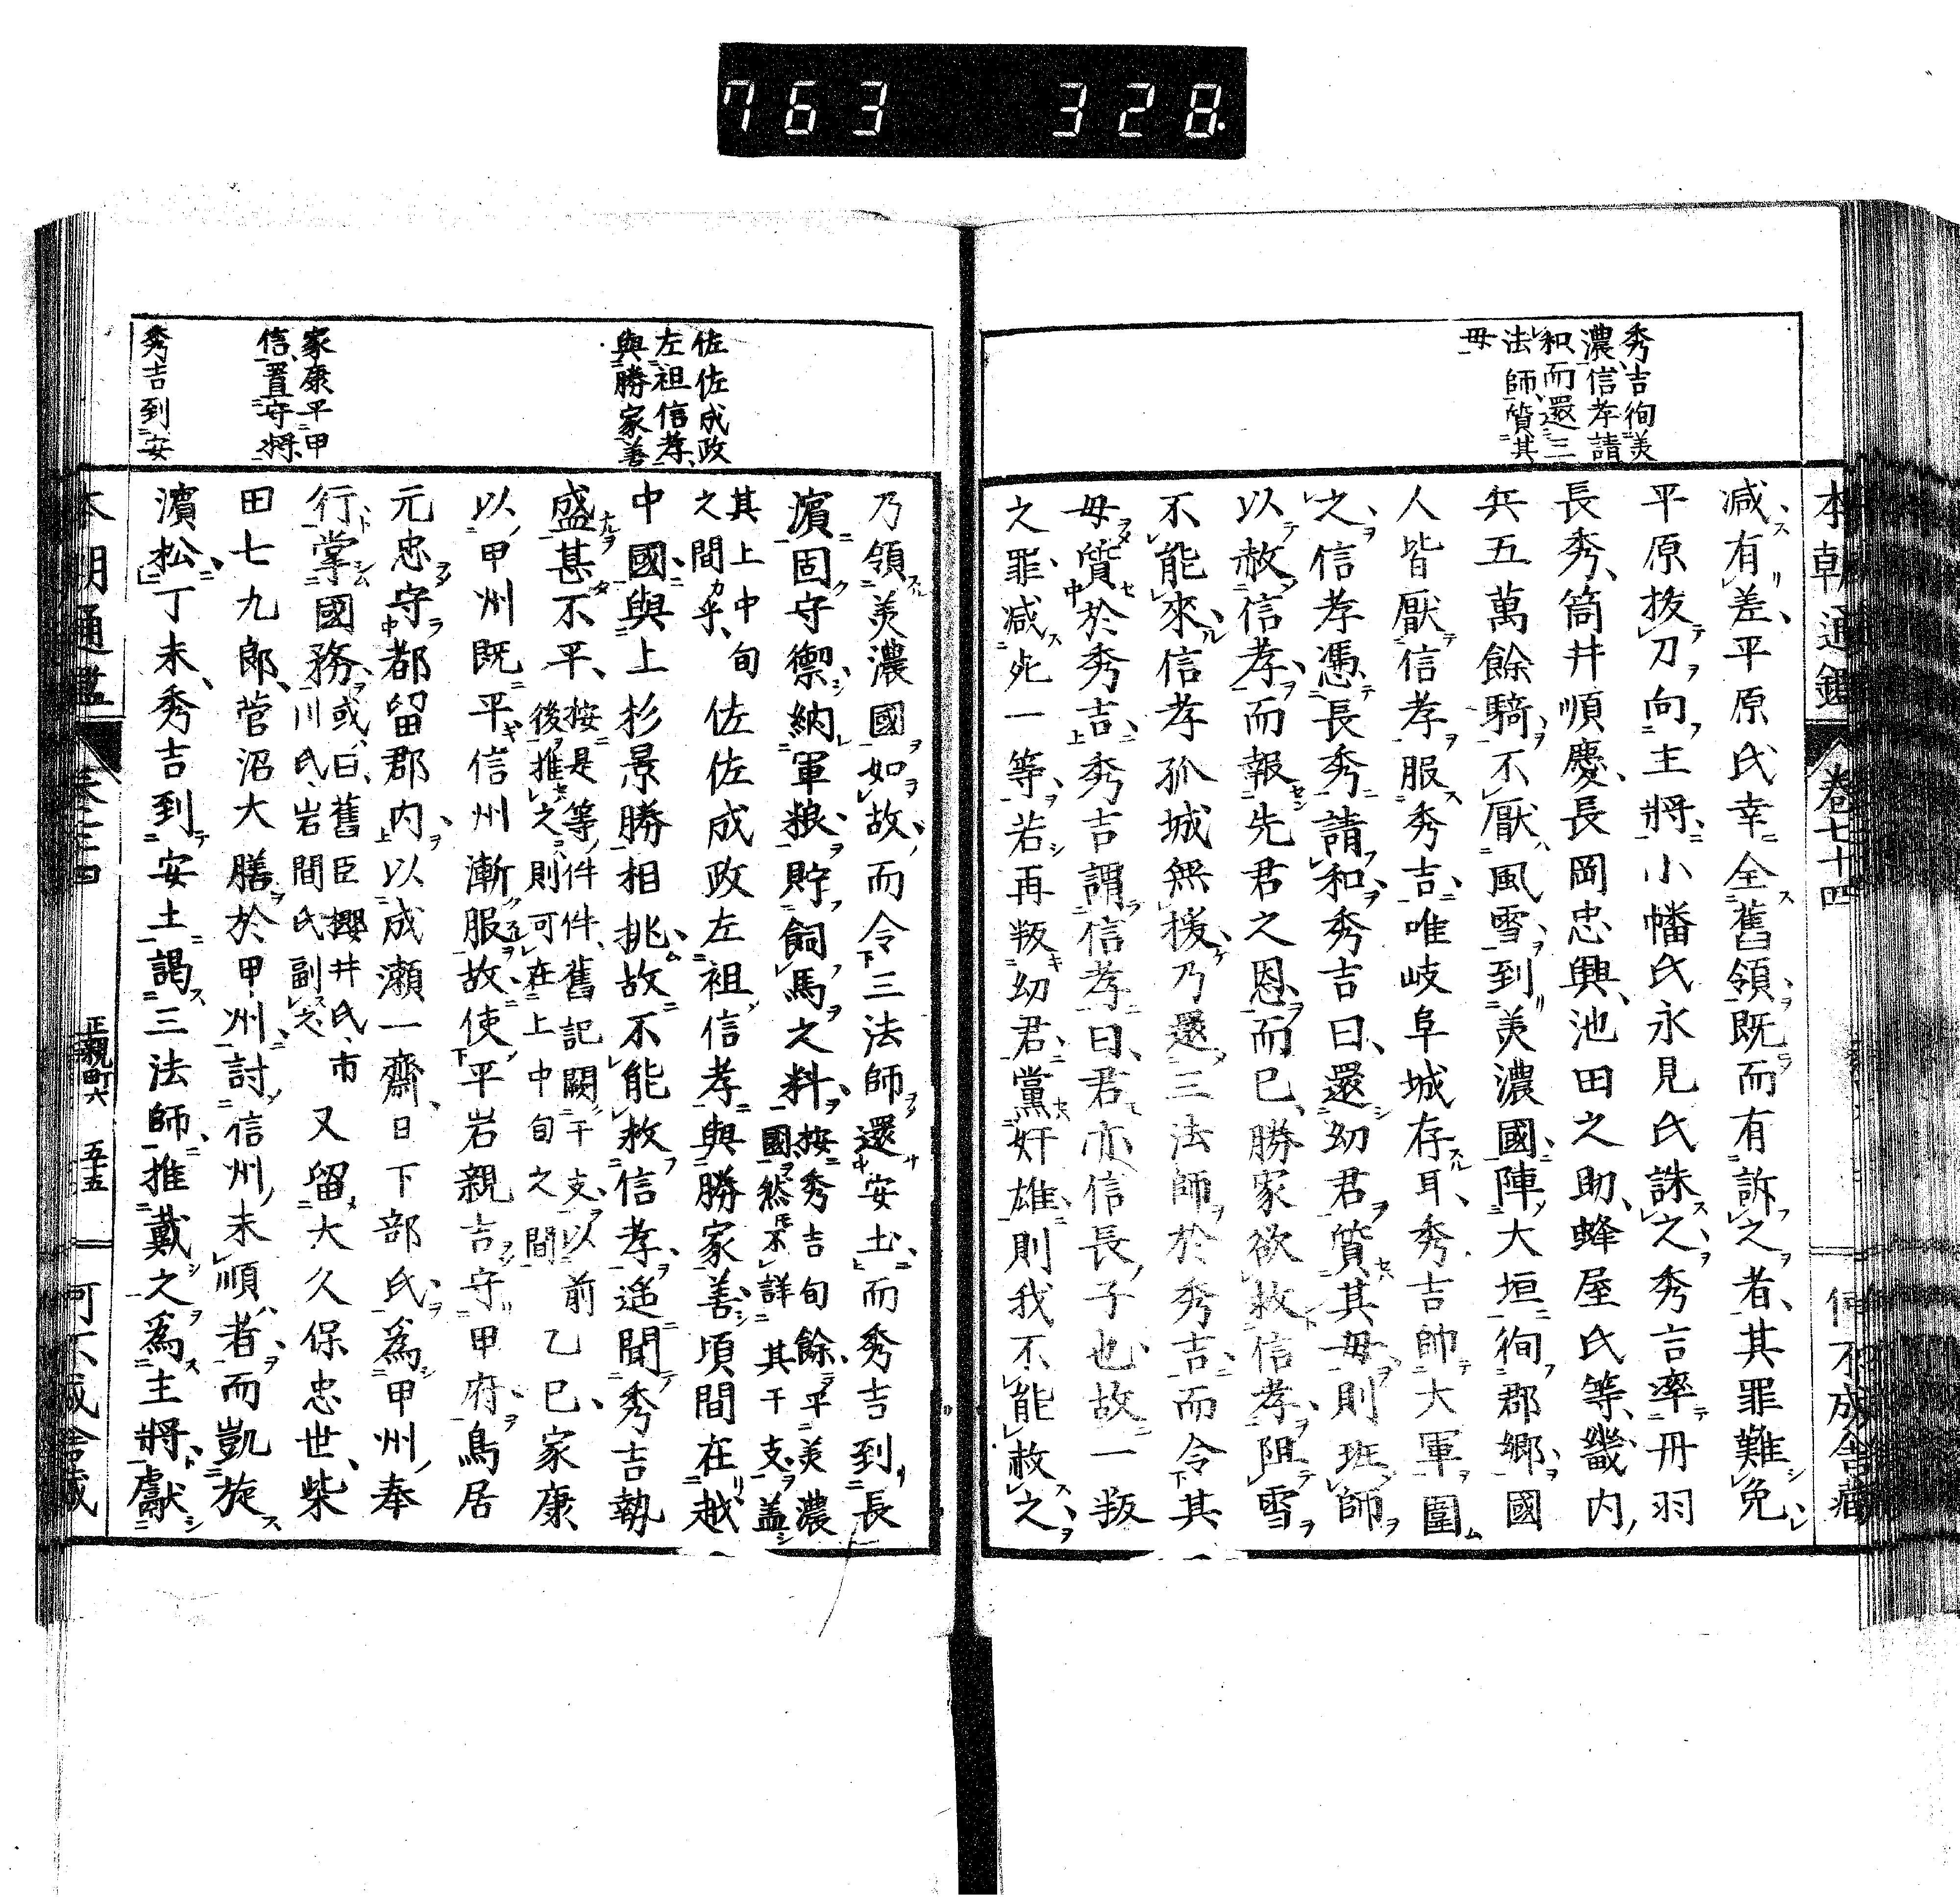 763 328.
本朝通鑑 卷七十四 何不成舍藏
秀吉徇美
濃信孝請
和而還三
法師質其
母
減有差平原氏幸全舊領既而有訴之者其罪難免
平原拔刀向主將小幡氏永見氏誅之秀言率丹羽
長秀筒井順慶長岡忠興池田之助蜂屋氏等畿内
兵五萬餘騎不厭風雪到美濃國陣大垣徇郡鄉國
人皆厭信孝服秀吉唯岐阜城存耳秀吉帥大軍圍
之信孝憑長秀請和秀吉曰還幼君質其母則班師
以赦信孝而報先君之恩而已勝家欲救信孝阻雪
不能來信孝孤城無援乃還三法師於秀吉而令其
母質於秀吉秀吉謂信孝曰君亦信長子也故一叛
之罪減死一等若再叛幼君黨奸雄則我不能赦之
佐佐成政
左袒信孝
與勝家善
家康平甲
信置守將
秀吉到安
乃領美濃國如故而令三法師還安土而秀吉到長
濵固守禦納軍粮貯飼馬之料按秀吉旬餘平美濃
國然不詳其干支蓋
其上中旬
之間乎佐佐成政左袒信孝與勝家善頃間在越
中國與上杉景勝相挑故不能救信孝遥聞秀吉執
盛甚不平按是等件件舊記闕干支以前
後推之則可在上中旬之間乙巳家康
以甲州既平信州漸服故使平岩親吉守甲府鳥居
元忠守都留郡内以成瀬一齋日下部氏爲甲州奉
行掌國務或曰舊臣櫻井氏市
川氏岩間氏副之又留大久保忠世柴
田七九郎菅沼大膳於甲州討信州未順者而凱旋
濵松丁未秀吉到安土謁三法師推戴之爲主將獻
本朝通鑑 正親町六 五十五